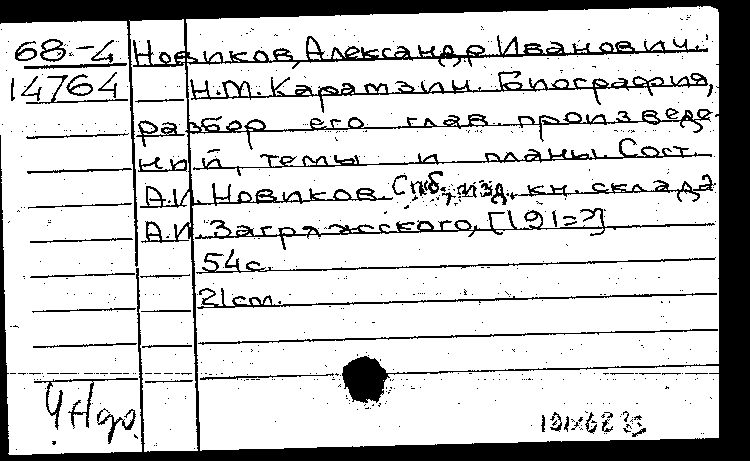 68-4 Новиков, Александр Иванович.
14764 Н.М. Карамзин. Биография,
разбор его глав. произведе-
ний, темы и планы. Сост.
А.И. Новиков. Спб., изд. кн. склада
А.И. Загряжского, [191=?]
54с.
21cm.